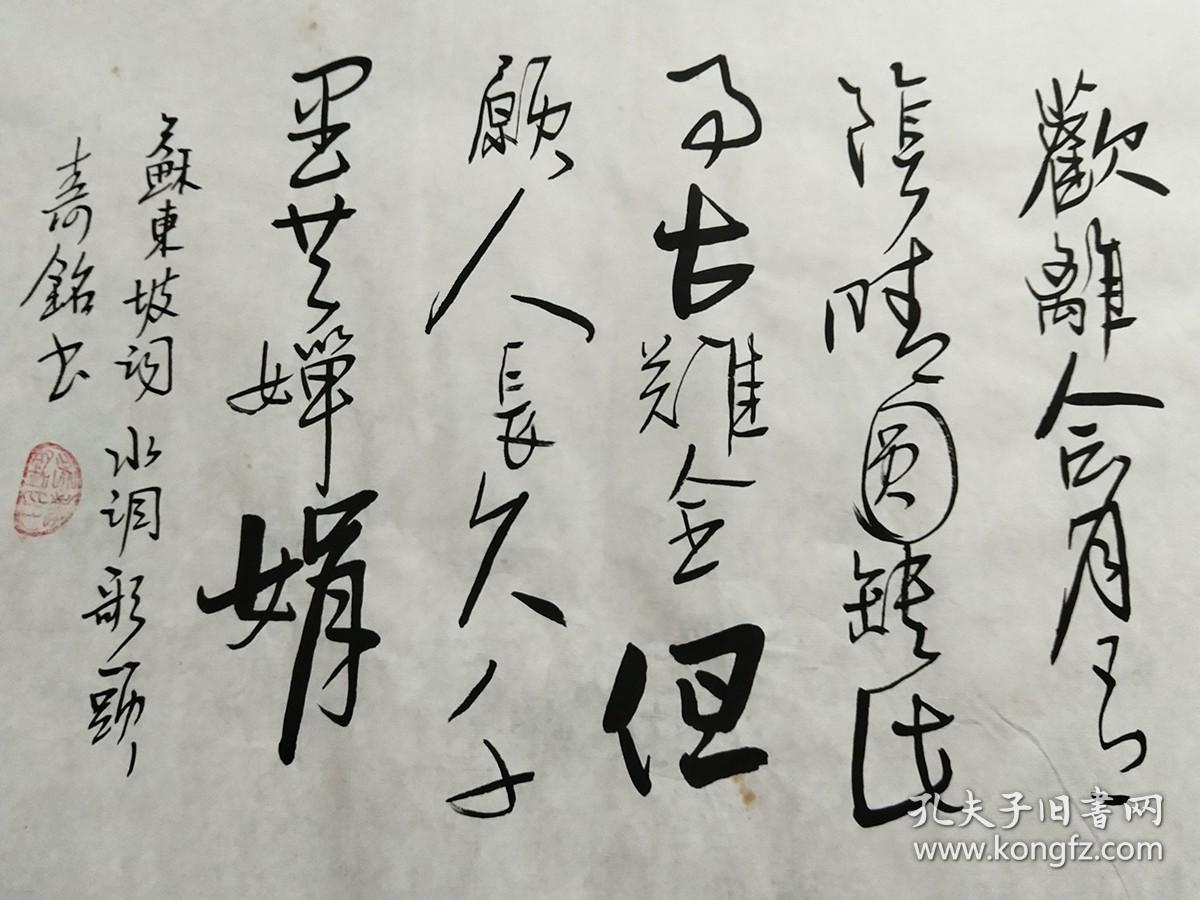 歡離合月有
陰晴圓缺此
事古難全但
願人長久千
里共嬋娟
蘇東坡詞水調歌頭
壽銘書
孔夫子旧书网
www.kongfz.com